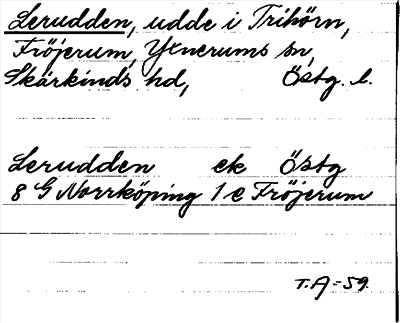 Lerudden, udde i Trihörn,
Fröjerum, Yxnerums sn,
Skärkinds hd, Östg. l.
Lerudden ek Östg
8 G Norrköping 1 e Fröjerum
T.A-59.